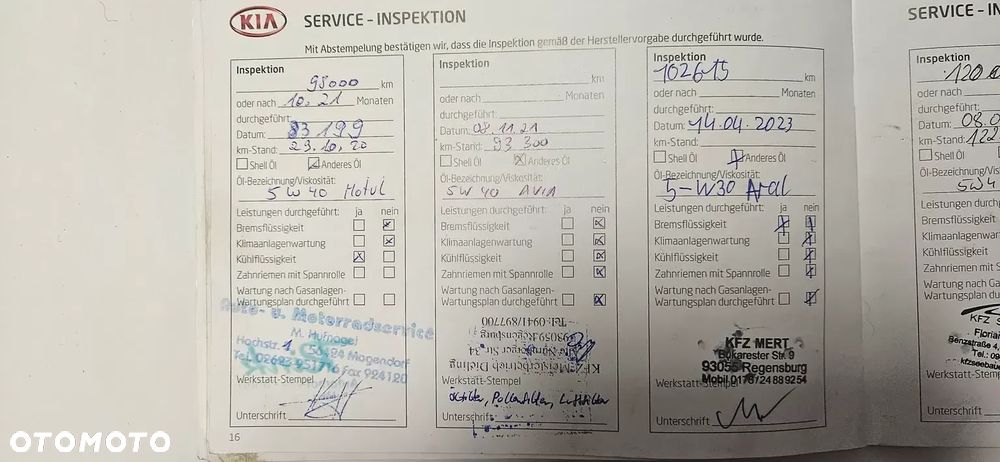 KIA SERVICE - INSPEKTION
Mit Abstempelung bestätigen wir, dass die Inspektion gemäß der Herstellervorgabe durchgeführt wurde.
Inspektion
98000 km
oder nach 10.21 Monaten
durchgeführt:
Datum: 83199
km-Stand: 23.10.20
Shell Öl Anderes Öl
Öl-Bezeichnung/Viskosität:
5W40 Motul
Leistungen durchgeführt: ja nein
Bremsflüssigkeit
Klimaanlagenwartung
Kühlflüssigkeit
Zahnriemen mit Spannrolle
Wartung nach Gasanlagen-
Wartungsplan durchgeführt
Auto- u. Motorradservice
M. Hufnagel
Hochstr. 1, 56424 Mogendorf
Fax 924120
Werkstatt-Stempel
Unterschrift
16
Inspektion
km
oder nach Monaten
durchgeführt:
Datum: 08.11.21
km-Stand: 93 300
Shell Öl Anderes Öl
Öl-Bezeichnung/Viskosität:
5W40 AVIA
Leistungen durchgeführt: ja nein
Bremsflüssigkeit
Klimaanlagenwartung
Kühlflüssigkeit
Zahnriemen mit Spannrolle
Wartung nach Gasanlagen-
Wartungsplan durchgeführt
Tel: 0941/897700
93059 Regensburg
KFZ-Meisterbetrieb
Werkstatt-Stempel
Ölfilter, Pollenfilter, Luftfilter
Unterschrift
Inspektion
102615 km
oder nach Monaten
durchgeführt:
Datum: 14.04.2023
km-Stand:
Shell Öl Anderes Öl
Öl-Bezeichnung/Viskosität:
5-W30 Aral
Leistungen durchgeführt: ja nein
Bremsflüssigkeit
Klimaanlagenwartung
Kühlflüssigkeit
Zahnriemen mit Spannrolle
Wartung nach Gasanlagen-
Wartungsplan durchgeführt
KFZ MERT
Bukarester Str. 9
93055 Regensburg
Mobil 0176/24889254
Werkstatt-Stempel
Unterschrift
SERVICE - IN
Inspektion
oder nach
durchgeführt:
Datum: 08.0
km-Stand: 122
Shell Öl
Öl-Bezeichnung/Vis
5W4
Leistungen durchge
Bremsflüssigkeit
Klimaanlagenwartu
Kühlflüssigkeit
Zahnriemen mit Sp
Wartung nach Gasa
Wartungsplan durc
KFZ
Florian
Benzstraße 4,
Tel.: 09
Werkstatt-Stem
Unterschrift
OTOMOTO